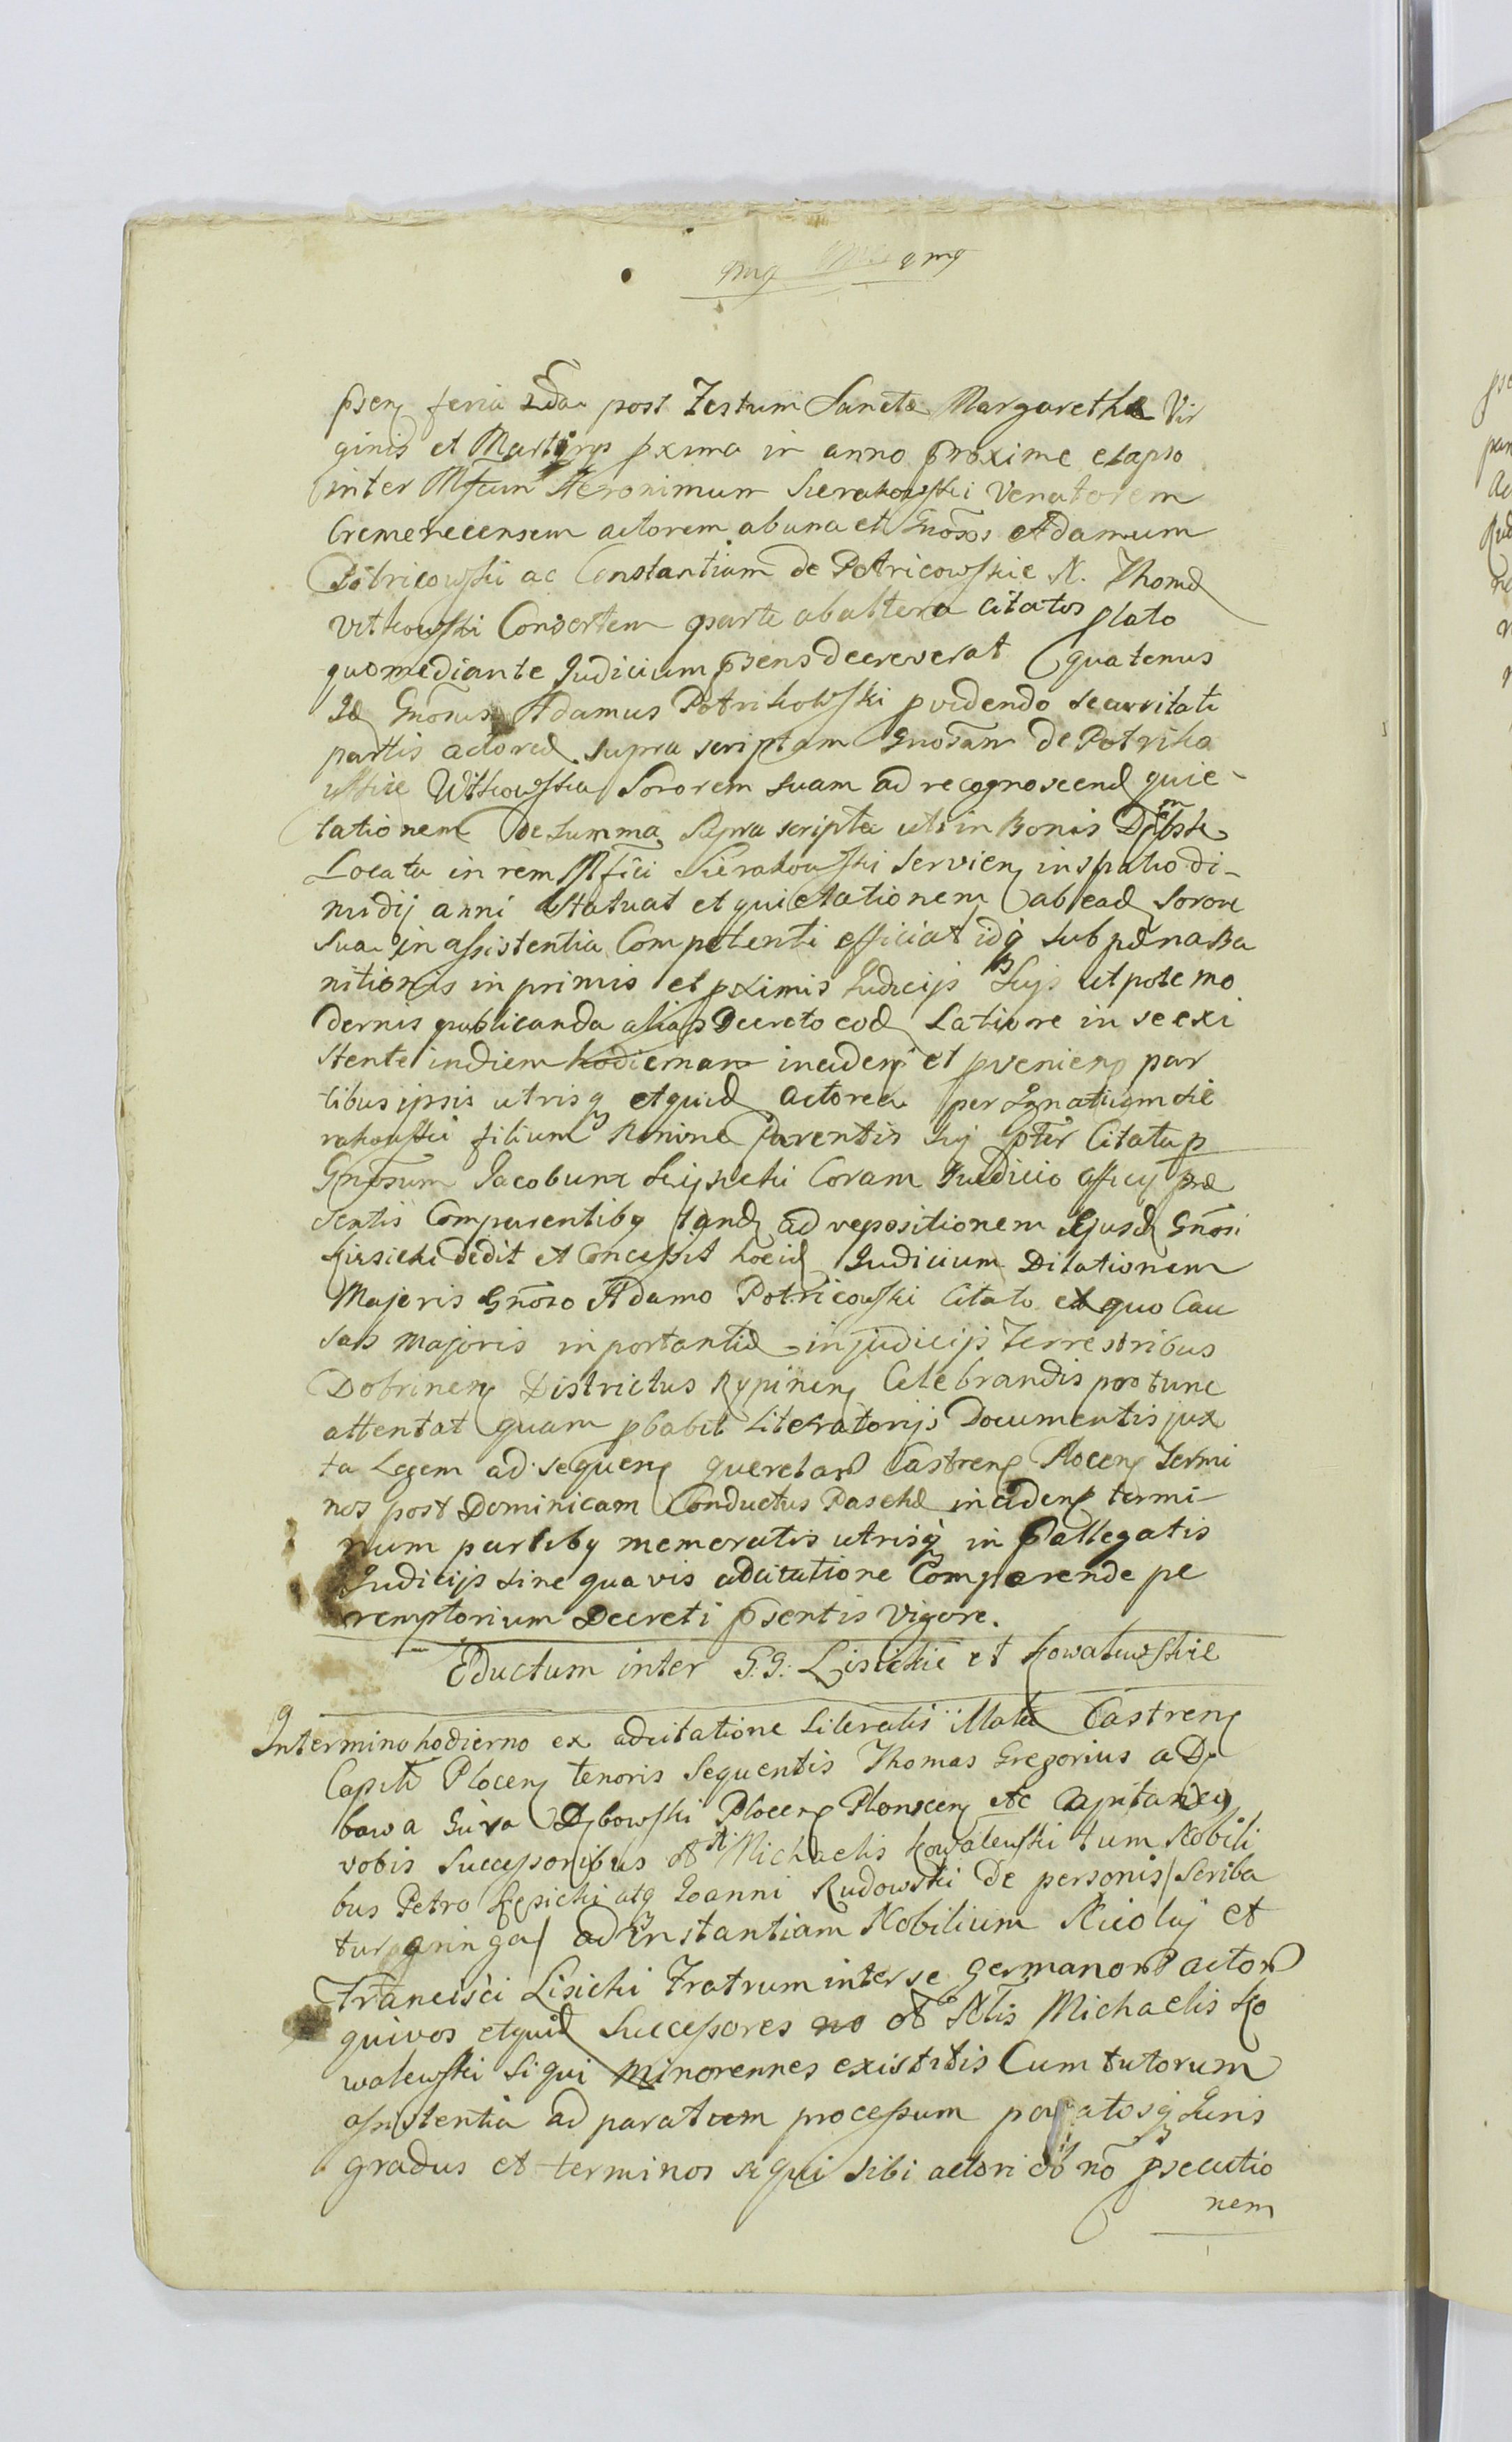 psen feria 2da post Festum Sanctæ Margarethæ Vir
ginis et Martyrys pxima in anno proxime elapso
inter Mfcum Heronimum Sierakowski Venatorem
Cremenecensem actorem ab una et Gnosos Adamum
Potricowski ac Constantiam de Potricowskie N. Thomæ
Vitkowski Consortem parte ab altera Citatos plato
quo mediante Judicium psens decreverat quatenus
Gnosus Adamus Potrikowski pvidendo securitati
partis actoreæ supra scriptam Gnosam de Potriko
wskie Witkowska Sororem suam ad recognoscend quie-
tationem de summa supra scripta uti in Bonis
Locata in rem Mfici Sierakowski servien in spatio di-
midij anni statuat et quietationem ab ead Sorore
sua in assistentia Competenti efficiat idq sub pæna Ba
nitionis in primis et pximis Judicijs hujs utpote mo
dernis publicanda alias Decreto eod Latiore in se exi
stente in diem hodiernam inciden et pvenien par
tibus ipsis utrisq et quid actorea per Ignatium Sie
rakowski filium nomine Parentis sui pter Citatus
Gnosum Jacobum coram Judicio officij præ
sentis Comparentibq tand ad repositionem ejusd Gnosi
dedit et Concessit hocid Judicium Dilationem
Majoris Gnoso Adamo Potricowski Citato ex quo Cau
sas majoris inportantiæ in judicijs Terrestribus
Dobrinen Districtus Rypinen Celebrandis pro tunc
attentat quam pbabit Literatorijs Documentis jux
ta Legem ad sequen querelar Castren Plocen Termi
nos post Dominicam Conductus Paschæ inciden termi-
num partibq memoratis utrisq in pallegatis
Judicijs sine quavis adcitatione Comparende pe
remptorium Decreti psentis vigore.
Eductum inter G.G. Lisickie et Kowalewskie
In termino hodierno ex adcitatione Literalis illata Castren
Capit Plocen tenoris sequentis Thomas Gregorius a
bowa Gura Dębowski Plocen Plonscen etc Capitaneq
vobis successoribus ol N. Michaelis Kowalewski tum Nobili
bus Petro Łęsicki atq Joanni Rudowski De personis/ scriba
tur / ad instantiam Nobilium Nicolaj et
Francisci Lisicki Fratrum inter se germanor actor
qui vos et quid Successores ol Nblis Michaelis Ko
walewski si qui minorennes existitis Cum tutorum
assistentia ad paratum processum paratosq Juris
gradus et terminos si qui sibi actori ob no psecutio
nem